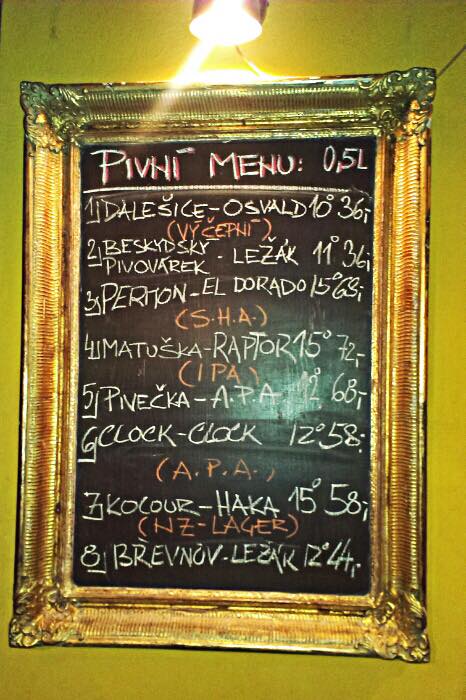 PIVNÍ MENU: 0,5L
1) DALEŠICE-OSVALD 10° 36,-
(VÝČEPNÍ)
2) BESKYDSKÝ
PIVOVÁREK - LEŽÁK 11° 36,-
3) PERMON-EL DORADO 15° 68,-
(S.H.A.)
4) MATUŠKA-RAPTOR 15° 72,-
(IPA)
5) PIVEČKA-A.P.A. 12° 68,-
6) CLOCK-CLOCK 12° 58,-
(A.P.A.)
7) KOCOUR-HAKA 15° 58,-
(NZ-LAGER)
8) BŘEVNOV-LEŽÁK 12° 44,-